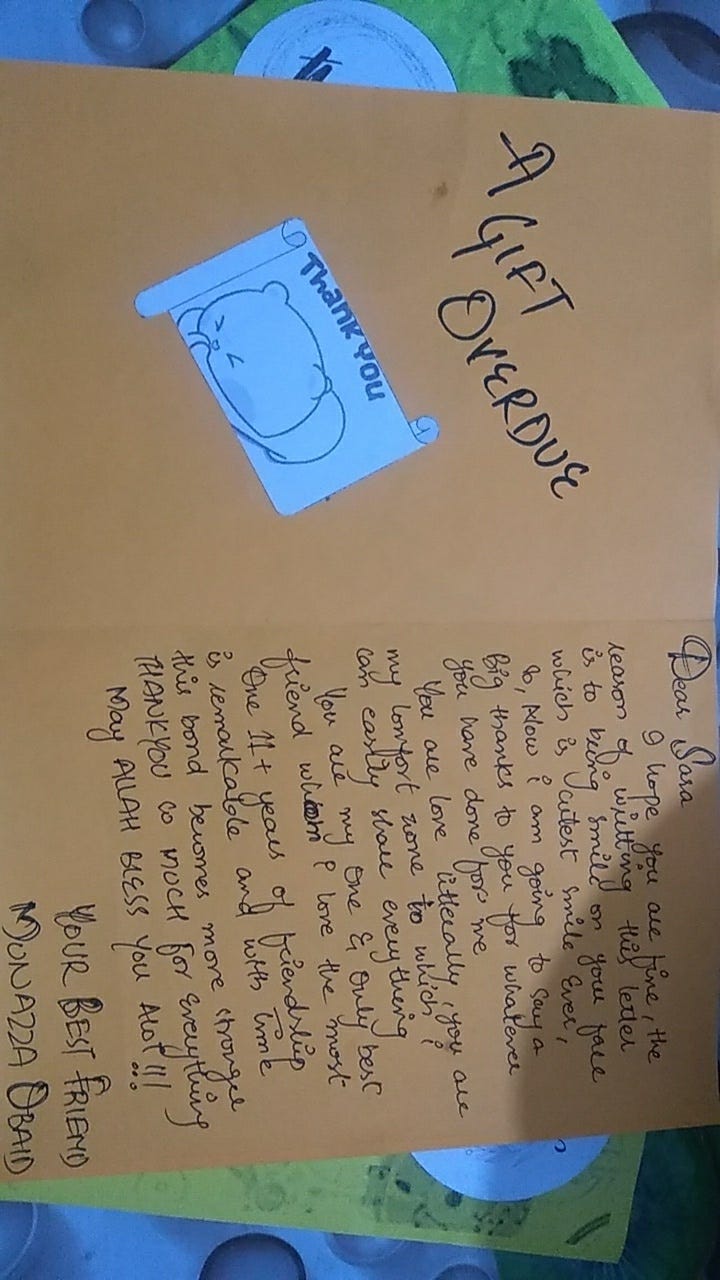 A GIFT
OVERDUE
Thank you
Dear Sara
I hope you are fine, the
reason of writting this letter
is to being smile on your face
which is cutest smile Ever,
So, Now i am going to say a
Big thanks to you for whatever
you have done for me
You are love litterally, you are
my comfort zone to which i
can easily share everything
You are my One & Only best
friend whom I love the most
One 11+ years of friendship
is remarkable and with time
this bond becomes more stronger
THANKYOU so MUCH for Everything
May ALLAH BLESS YOU Alot!!!
YOUR BEST FRIEND
MUNAZZA OBAID